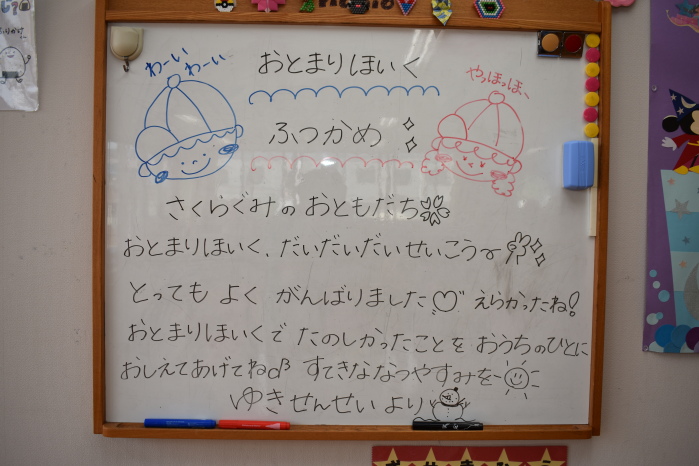 わーい わーい
おとまりほいく
やっほっほ、
ふつかめ
さくらぐみのおともだち
おとまりほいく、だいだいだいせいこう〜
とってもよくがんばりました えらかったね!
おとまりほいくでたのしかったことをおうちのひとに
おしえてあげてね♪ すてきななつやすみを
ゆきせんせいより